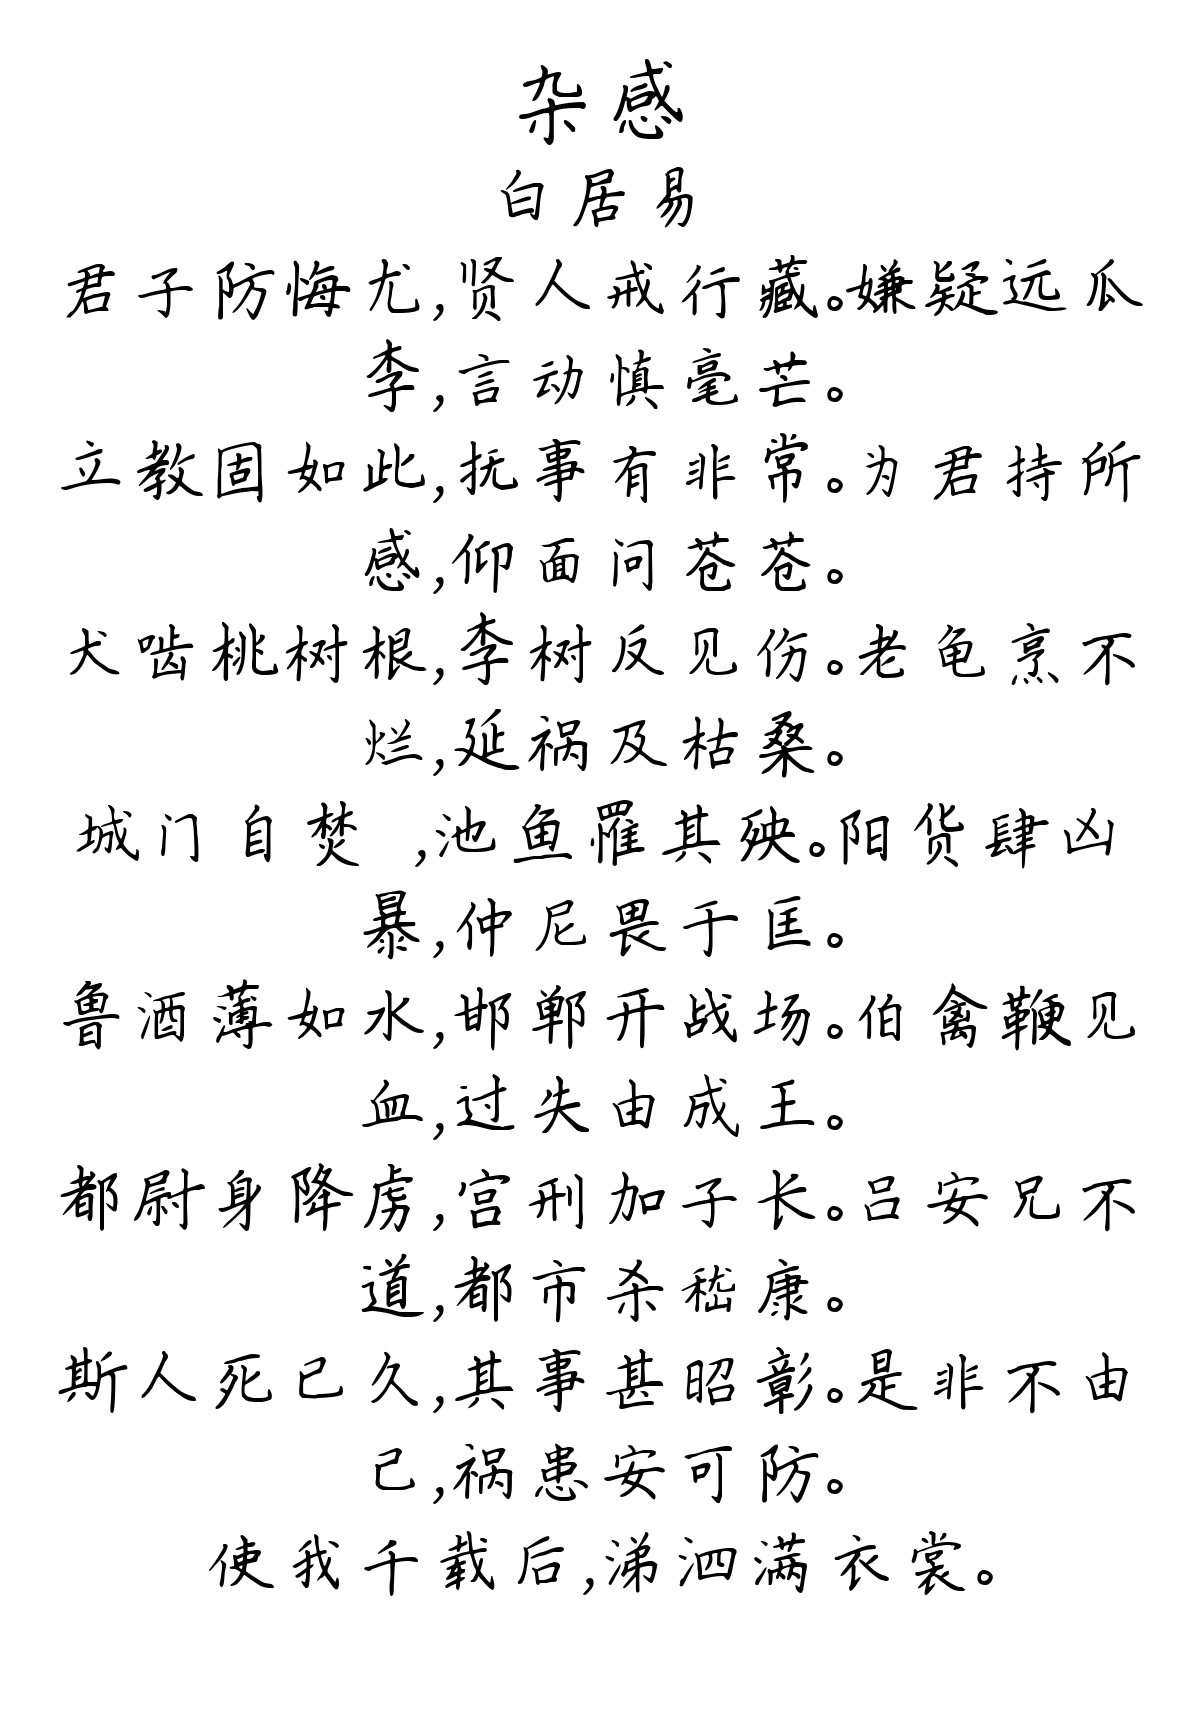 杂感
白居易
君子防悔尤,贤人戒行藏。嫌疑远瓜
李,言动慎毫芒。
立教固如此,抚事有非常。为君持所
感,仰面问苍苍。
犬啮桃树根,李树反见伤。老龟烹不
烂,延祸及枯桑。
城门自焚 ,池鱼罹其殃。阳货肆凶
暴,仲尼畏于匡。
鲁酒薄如水,邯郸开战场。伯禽鞭见
血,过失由成王。
都尉身降虏,宫刑加子长。吕安兄不
道,都市杀嵇康。
斯人死已久,其事甚昭彰。是非不由
己,祸患安可防。
使我千载后,涕泗满衣裳。